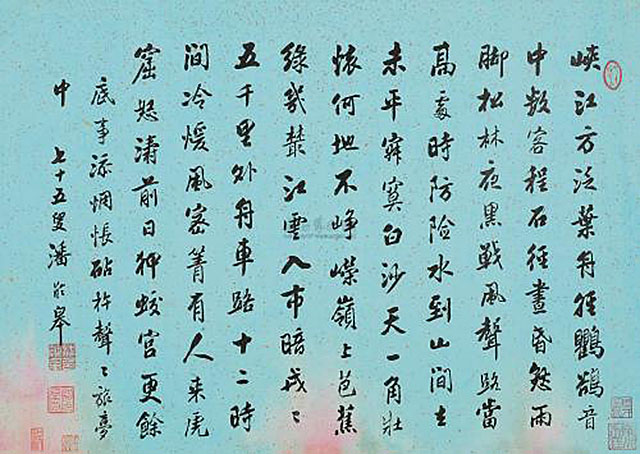 峽江方泛葉舟經鸜鵒音
中數客程石徑晝昏愁雨
脚松林夜黑戰風聲路當
高處時防險水到山間
未平寂寞白沙天一角壯
懷何地不崢嶸嶺上芭蕉
綠幾叢江雲入市暗戎〻
五千里外舟車路十二時
間冷煖風密箐有人來虎
窟怒濤前日狎蛟宮更餘
底事添惆悵砧杵聲〻旅夢
中 七十五叟潘齡皋